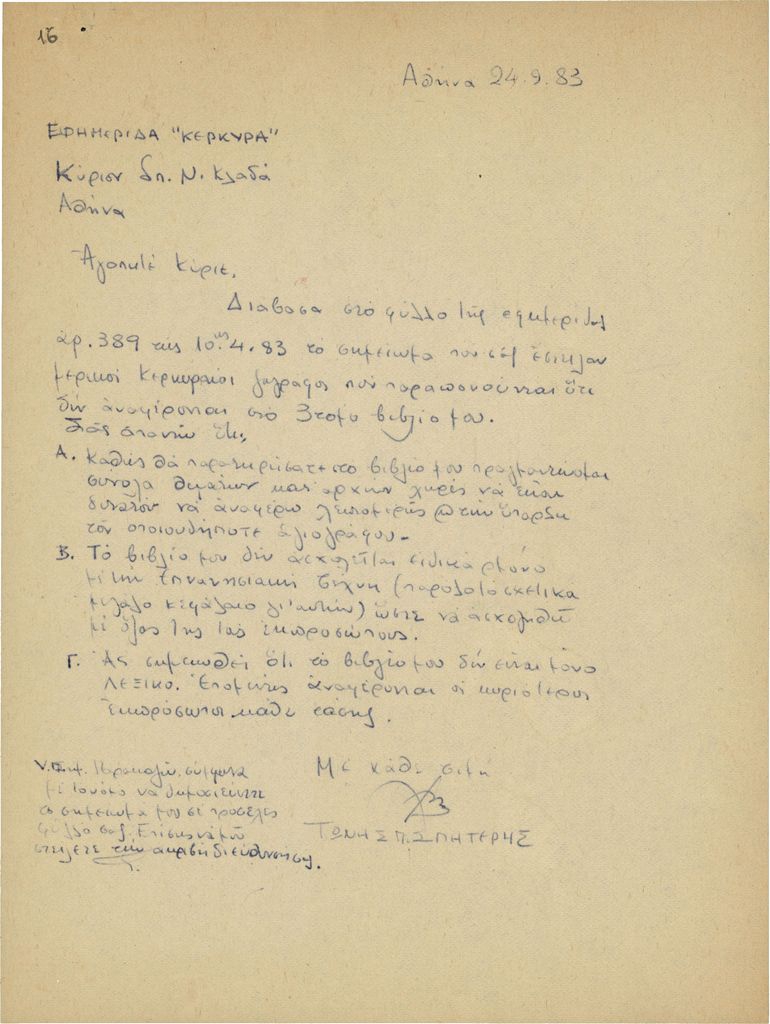 16
Αθήνα 24.9.83
ΕΦΗΜΕΡΙΔΑ "ΚΕΡΚΥΡΑ"
Κύριον Σπ. Ν. Κλαδά
Αθήνα
Αγαπητέ Κύριε,
Διάβασα στο φύλλο της εφημερίδας
αρ. 389 της 10ης.4.83 το σημείωμα που σας έστειλαν
μερικοί Κερκυραίοι ζωγράφοι που παραπονούνται ότι
δεν αναφέρονται στο 3τομο βιβλίο μου.
Σας απαντώ ότι:
Α. Καθώς θα παρατηρήσατε στο βιβλίο μου πραγματεύομαι
σύνολα θεμάτων και αρχών χωρίς να είναι
δυνατόν να αναφέρω λεπτομερώς την ύπαρξη
του οποιουδήποτε αγιογράφου.-
Β. Το βιβλίο μου δεν ασχολείται ειδικά μόνο
με την επτανησιακή τέχνη (παρόλο το σχετικά
μεγάλο κεφάλαιο γι'αυτήν) ώστε να ασχοληθή
με όλους της τους εκπροσώπους.
Γ. Ας σημειωθεί ότι το βιβλίο μου δεν είναι μόνο
ΛΕΞΙΚΟ. Επομένως αναφέρονται οι κυριότεροι
εκπρόσωποι κάθε τάσης.
Με κάθε τιμή
ΤΩΝΗΣ Π. ΣΠΗΤΕΡΗΣ
Παρακαλώ, σύμφωνα
με τον νόμο να δημοσιεύσετε
το σημείωμά μου σε προσεχές
φύλλο σας. Επίσης να μου
στείλετε την ακριβή διεύθυνσή σας.